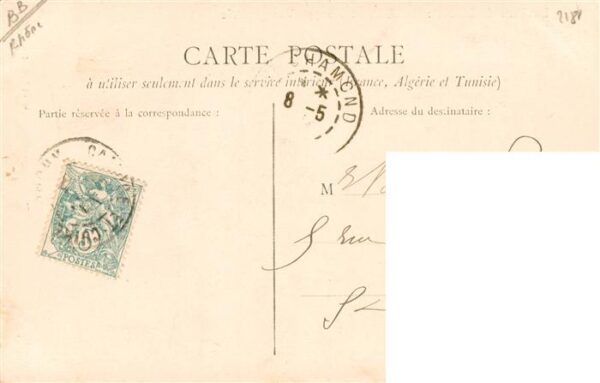 BB
Rhône
218
CARTE POSTALE
à utiliser seulement dans le service intérieur (France, Algérie et Tunisie)
CHAMOND
8 -5
Partie réservée à la correspondance :
Adresse du destinataire :
M
5 rue
POSTES